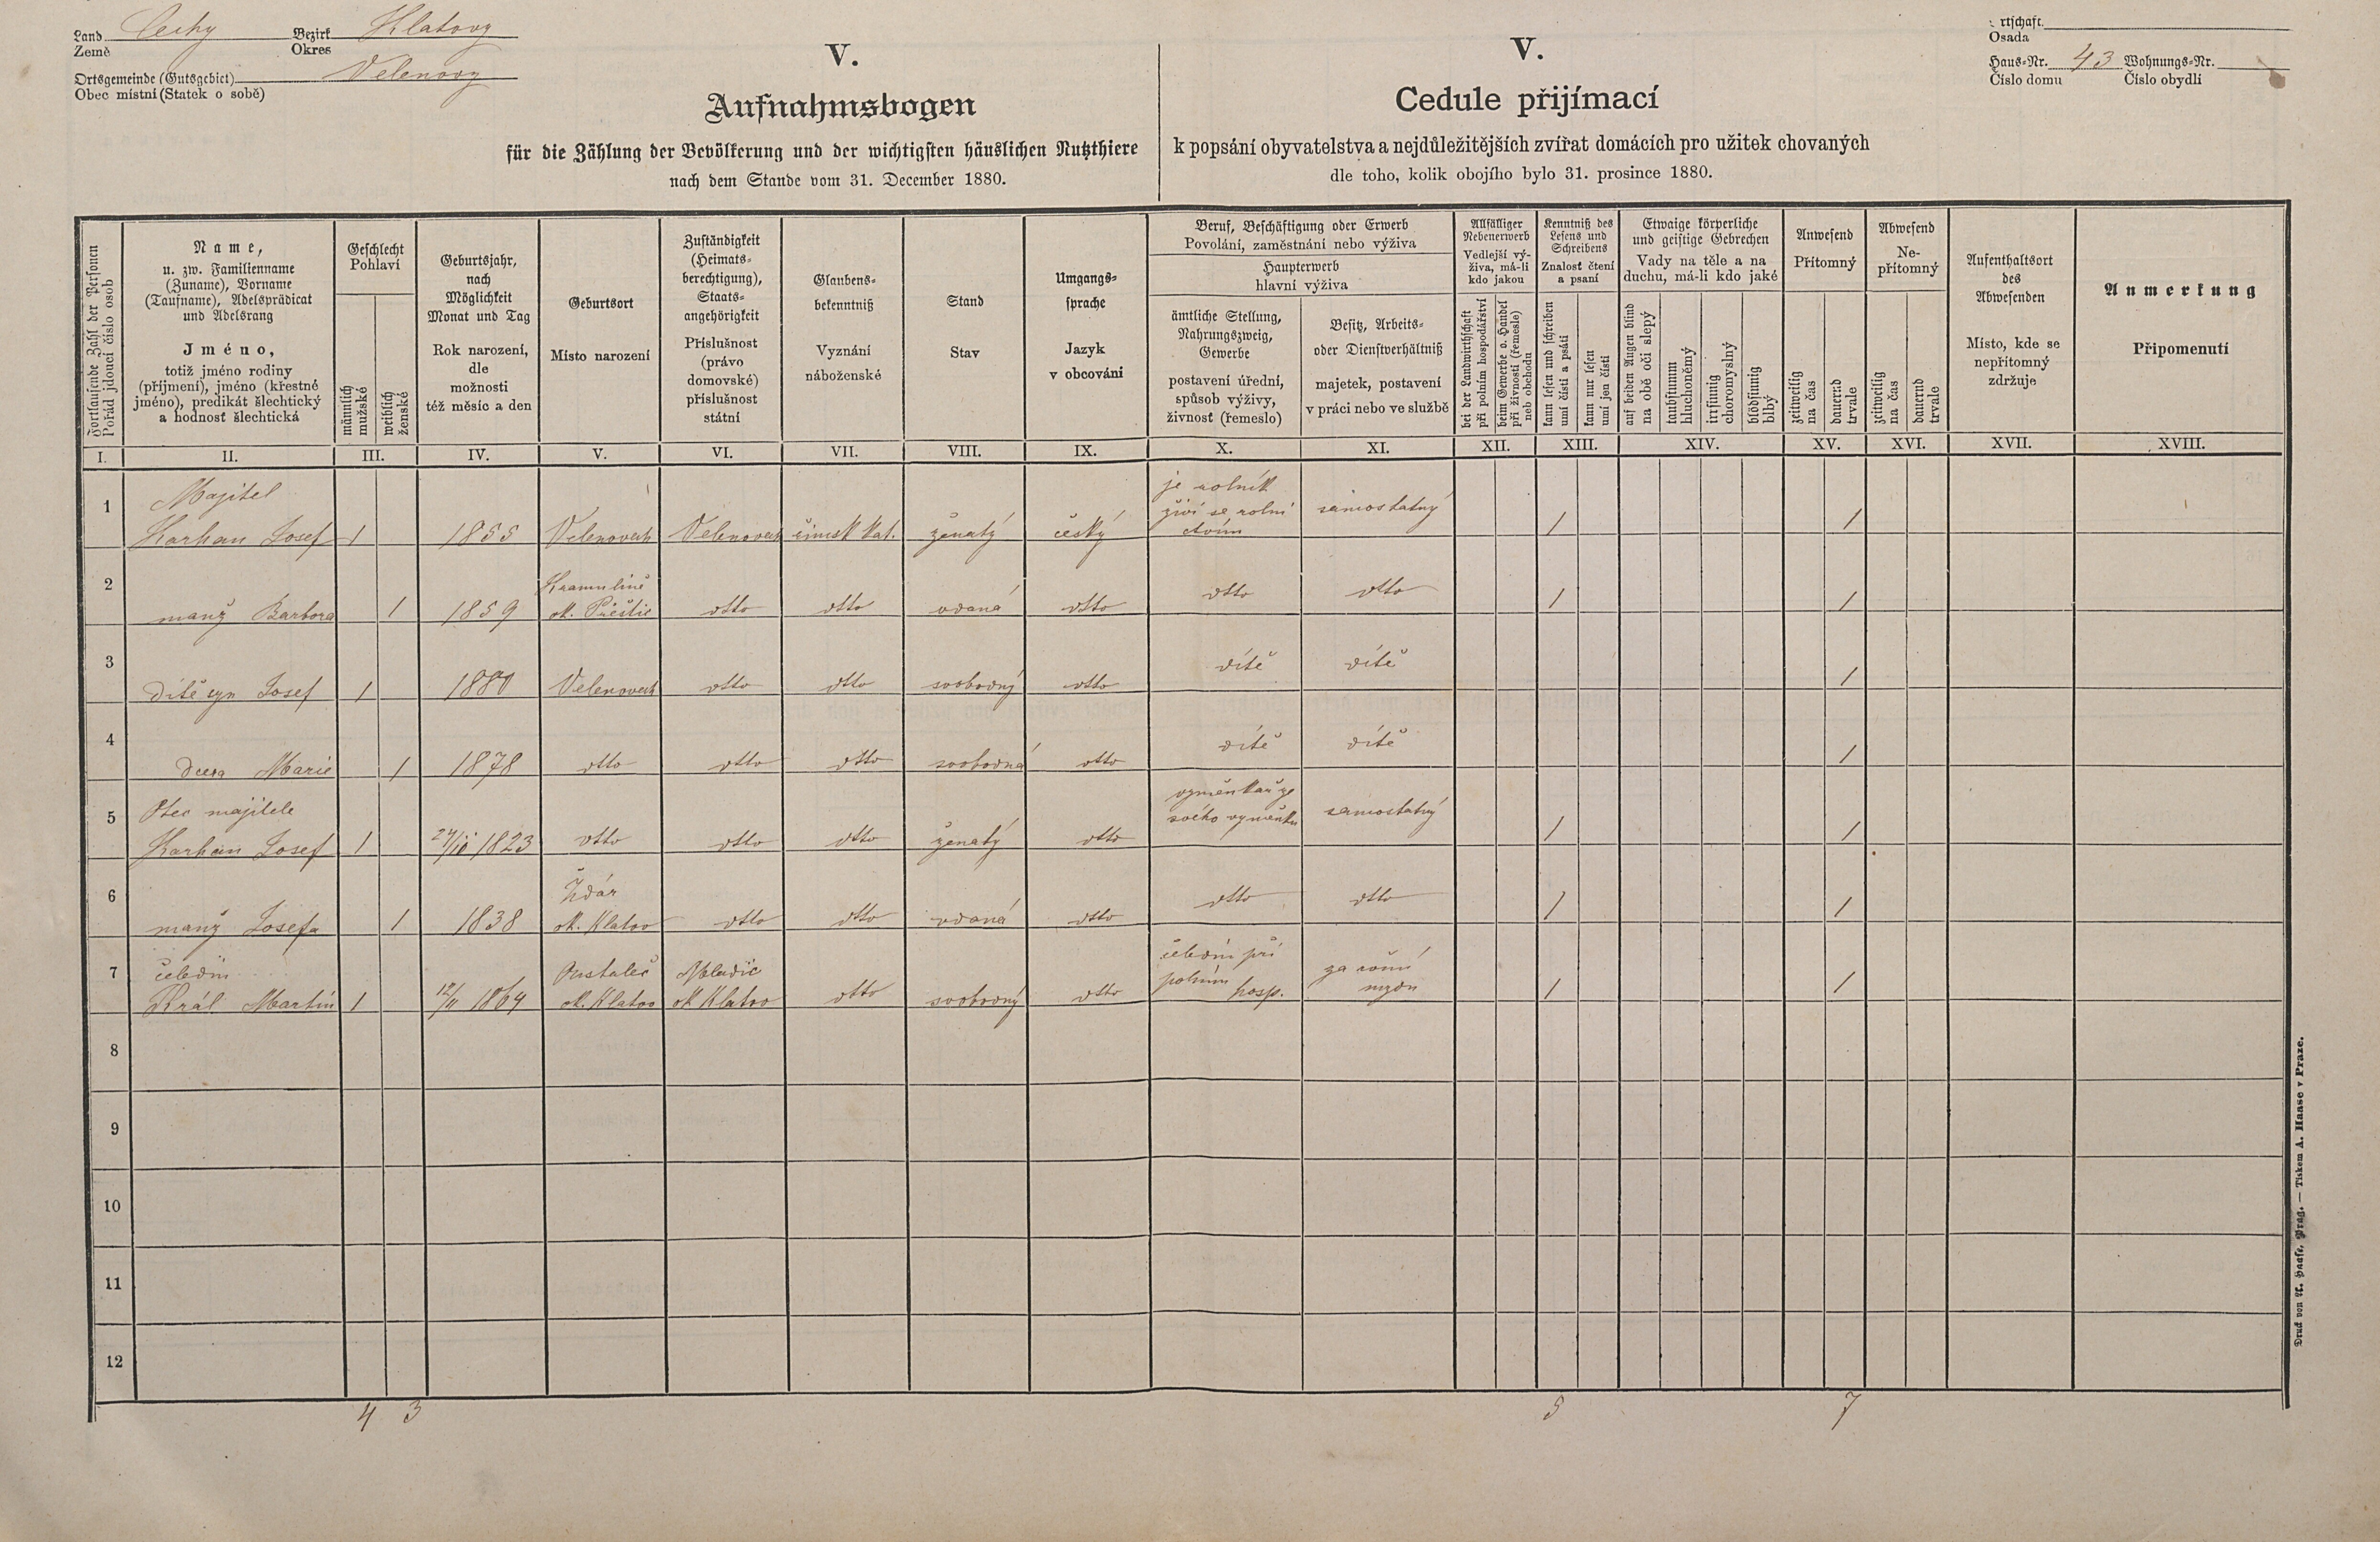 Land Čechy Bezirk Klatovy
Země Okres
Ortsgemeinde (Gutsgebiet) Velenovy
Obec místní (Statek o sobě)
V.
Aufnahmsbogen
für die Zählung der Bevölkerung und der wichtigsten häuslichen Nutzthiere
nach dem Stande vom 31. December 1880.
V.
Cedule přijímací
k popsání obyvatelstva a nejdůležitějších zvířat domácích pro užitek chovaných
dle toho, kolik obojího bylo 31. prosince 1880.
rtschaft
Osada
Haus-Nr. 43 Wohnungs-Nr.
Číslo domu Číslo obydlí
Fortlaufende Zahl der Personen
Pořád jdoucí číslo osob
Name,
u. zw. Familienname
(Zuname), Vorname
(Taufname), Adelsprädicat
und Adelsrang
Jméno,
totiž jméno rodiny
(příjmení), jméno (křestné
jméno), predikát šlechtický
a hodnost šlechtická
Geschlecht
Pohlaví
männlich
mužské
weiblich
ženské
Geburtsjahr,
nach
Möglichkeit
Monat und Tag
Rok narození,
dle
možnosti
též měsíc a den
Geburtsort
Místo narození
Zuständigkeit
(Heimats-
berechtigung),
Staats-
angehörigkeit
Příslušnost
(právo
domovské)
příslušnost
státní
Glaubens-
bekenntniß
Vyznání
náboženské
Stand
Stav
Umgangs-
sprache
Jazyk
v obcování
Beruf, Beschäftigung oder Erwerb
Povolání, zaměstnání nebo výživa
Haupterwerb
hlavní výživa
ämtliche Stellung,
Nahrungszweig,
Gewerbe
postavení úřední,
spůsob výživy,
živnost (řemeslo)
Besitz, Arbeits-
oder Dienstverhältniß
majetek, postavení
v práci nebo ve službě
Allfälliger
Nebenerwerb
Vedlejší vý-
živa, má-li
kdo jakou
bei der Landwirthschaft
při polním hospodářství
beim Gewerbe o. Handel
při živnosti (řemesle)
neb obchodu
Kenntniß des
Lesens und
Schreibens
Znalost čtení
a psaní
kann lesen und schreiben
umí čísti a psáti
kann nur lesen
umí jen čísti
Etwaige körperliche
und geistige Gebrechen
Vady na těle a na
duchu, má-li kdo jaké
auf beiden Augen blind
na obě oči slepý
taubstumm
hluchoněmý
irrsinnig
choromyslný
blödsinnig
blbý
Anwesend
Přítomný
zeitweilig
na čas
dauernd
trvale
Abwesend
Ne-
přítomný
zeitweilig
na čas
dauernd
trvale
Aufenthaltsort
des
Abwesenden
Místo, kde se
nepřítomný
zdržuje
Anmerkung
Připomenutí
I. II. III. IV. V. VI. VII. VIII. IX. X. XI. XII. XIII. XIV. XV. XVI. XVII. XVIII.
Majitel je rolník
živí se rolni samostatný
1 Karhan Josef 1 1855 Velenovech Velenovech římsk kat. ženatý český ctvím 1 1
Kramulině
2 manž Barbora 1 1859 ok. Přeštic dtto dtto vdaná dtto dtto dtto 1 1
3 dítě syn Josef 1 1880 Velenovech dtto dtto svobodný dtto dítě dítě 1
4 dcera Marie 1 1878 dtto dtto dtto svobodná dtto dítě dítě 1
Otec majitele výměnkář ze
svého výměnku samostatný
5 Karhan Josef 1 24/10 1823 dtto dtto dtto ženatý dtto 1 1
Žďár
6 manž Josefa 1 1838 ok. Klatov dtto dtto vdaná dtto dtto dtto 1 1
čeledín čeledín při
polním za roční
7 Král Martin 1 12/11 1864 ok. Klatov ok Klatov dtto svobodný dtto hosp. mzdu 1 1
8
9
10
11
12
4 3 5 7
Druck von A. Haase, Prag. — Tiskem A. Haase v Praze.